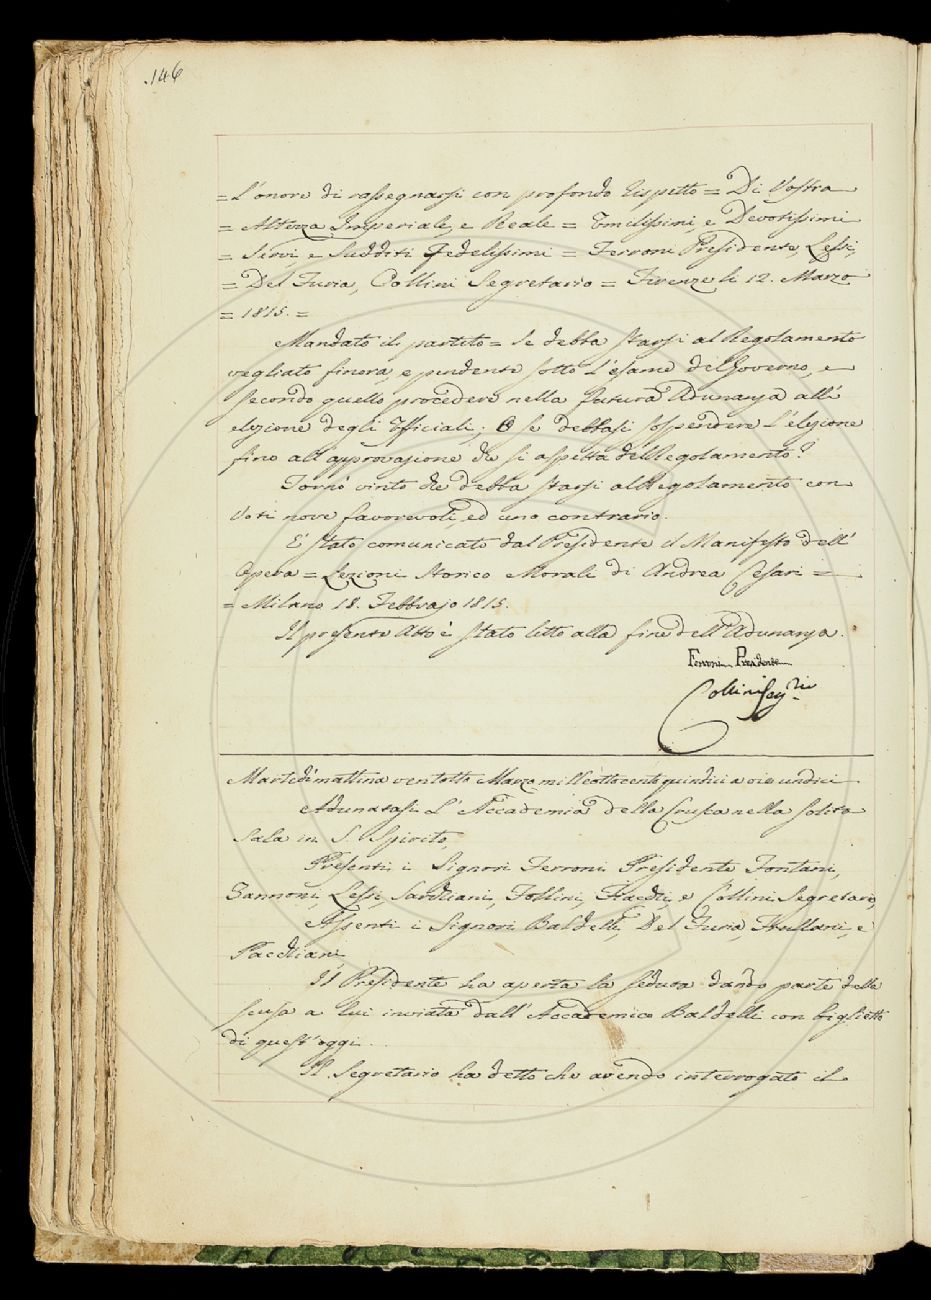 146
= L'onore di rassegnarsi con profondo Rispetto = Di Vostra
= Altezza Imperiale, e Reale = Umilissimi, e Devotissimi
= Servi e Sudditi Fedelissimi = Ferroni Presidente, Lessi,
= Del Furia, Collini Segretario = Firenze li 12. Marzo
= 1815. =
Mandato il partito = Se debba starsi al Regolamento
vegliato finora, e pendente sotto l'esame del Governo, e
secondo quello procedere nella futura Adunanza all'
elezione degli Ufficiali; O se debbasi sospendere l'elezione
fino all'approvazione che si aspetta del Regolamento?
Tornò vinto che debba starsi al Regolamento con
Voti nove favorevoli, ed uno contrario.
E' stato comunicato dal Presidente il Manifesto dell'
Opera = Lezioni Storico Morali di Andrea Cesari =
= Milano 18. Febbrajo 1815.
Il presente Atto è stato letto alla fine dell'Adunanza.
Ferroni Presidente
Collini Seg.rio
Martedì mattina ventotto Marzo mille ottocento quindici a ore undici
Adunatasi L'Accademia della Crusca nella solita
Sala in S. Spirito,
Presenti i Signori Ferroni Presidente Fontani,
Zannoni, Lessi, Sarchiani, Follini, Fiacchi, e Collini Segretario,
Assenti i Signori Baldelli, Del Furia, Hullani, e
Pacchiani,
Il Presidente ha aperta la seduta dando parte delle
scusa a lui inviata dall'Accademico Baldelli con biglietto
di quest'oggi.
Il Segretario ha detto che avendo interrogato il